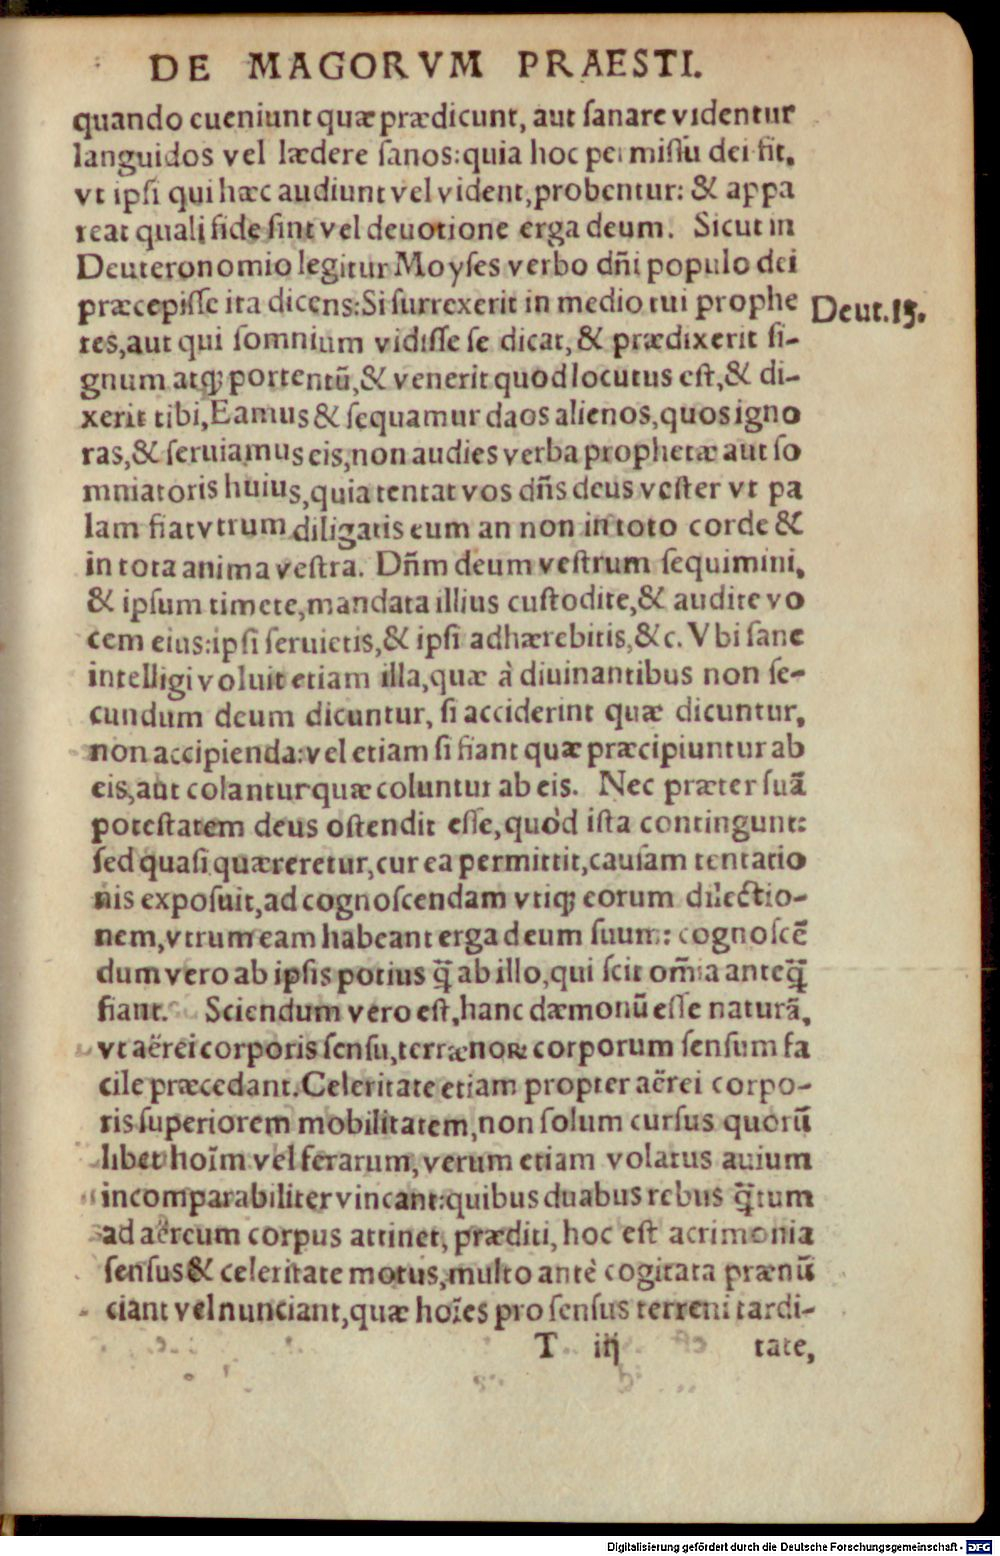 DE MAGORVM PRAESTI.
quando cueniunt quæ prædicunt, aut ſanare videntur
languidos vel lædere ſanos: quia hoc permiſſu dei fit,
vt ipſi qui hæc audiunt vel vident, probentur: & appa
reat quali fide ſint vel deuotione erga deum. Sicut in
Deuteronomio legitur Moyſes verbo dn̄i populo dei
præcepiſſe ita dicens: Si ſurrexerit in medio tui prophe
Deut. 13.
tes, aut qui ſomnium vidiſſe ſe dicat, & prædixerit ſi-
gnum atq; portentū, & venerit quod locutus eſt, & di-
xerit tibi, Eamus & ſequamur daos alienos, quos igno
ras, & ſeruiamus eis, non audies verba prophetæ aut ſo
mniatoris huius, quia tentat vos dn̄s deus veſter vt pa
lam fiat vtrum diligatis eum an non in toto corde &
in tota anima veſtra. Dn̄m deum veſtrum ſequimini,
& ipſum timete, mandata illius cuſtodite, & audite vo
cem eius: ipſi ſeruietis, & ipſi adhærebitis, &c. Vbi ſane
intelligi voluit etiam illa, quæ à diuinantibus non ſe-
cundum deum dicuntur, ſi acciderint quæ dicuntur,
non accipienda: vel etiam ſi fiant quæ præcipiuntur ab
eis, aut colantur quæ coluntur ab eis. Nec præter ſuā
poteſtatem deus oſtendit eſſe, quòd iſta contingunt:
ſed quaſi quæreretur, cur ea permittit, cauſam tentatio
nis expoſuit, ad cognoſcendam vtiq; eorum dilectio-
nem, vtrum eam habeant erga deum ſuum: cognoſcē
dum vero ab ipſis potius q̄ ab illo, qui ſcit om̄ia anteq̄
fiant. Sciendum vero eſt, hanc dæmonū eſſe naturā,
vt aërei corporis ſenſu, terrænoꝝ corporum ſenſum fa
cile præcedant. Celeritate etiam propter aërei corpo-
ris ſuperiorem mobilitatem, non ſolum curſus quorū
libet hoīm vel ferarum, verum etiam volatus auium
incomparabiliter vincant: quibus duabus rebus q̄tum
ad aëreum corpus attinet, præditi, hoc eſt acrimonia
ſenſus & celeritate motus, multo antè cogitata prænū
ciant vel nunciant, quæ hoīes pro ſenſus terreni tardi-
T iij tate,
Digitalisierung gefördert durch die Deutsche Forschungsgemeinschaft - DFG